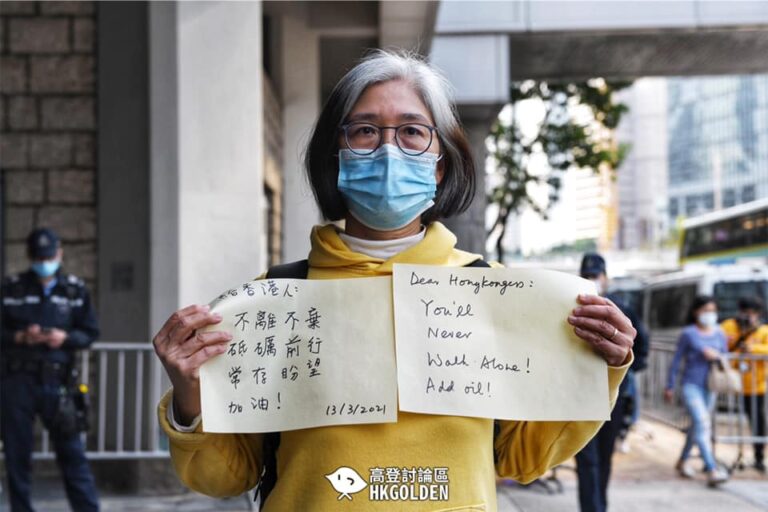 香港人：
不離不棄
砥礪前行
常存盼望
加油！
13/3/2021
Dear Hongkongers:
You'll
Never
Walk Alone!
Add oil!
高登討論區
HKGOLDEN